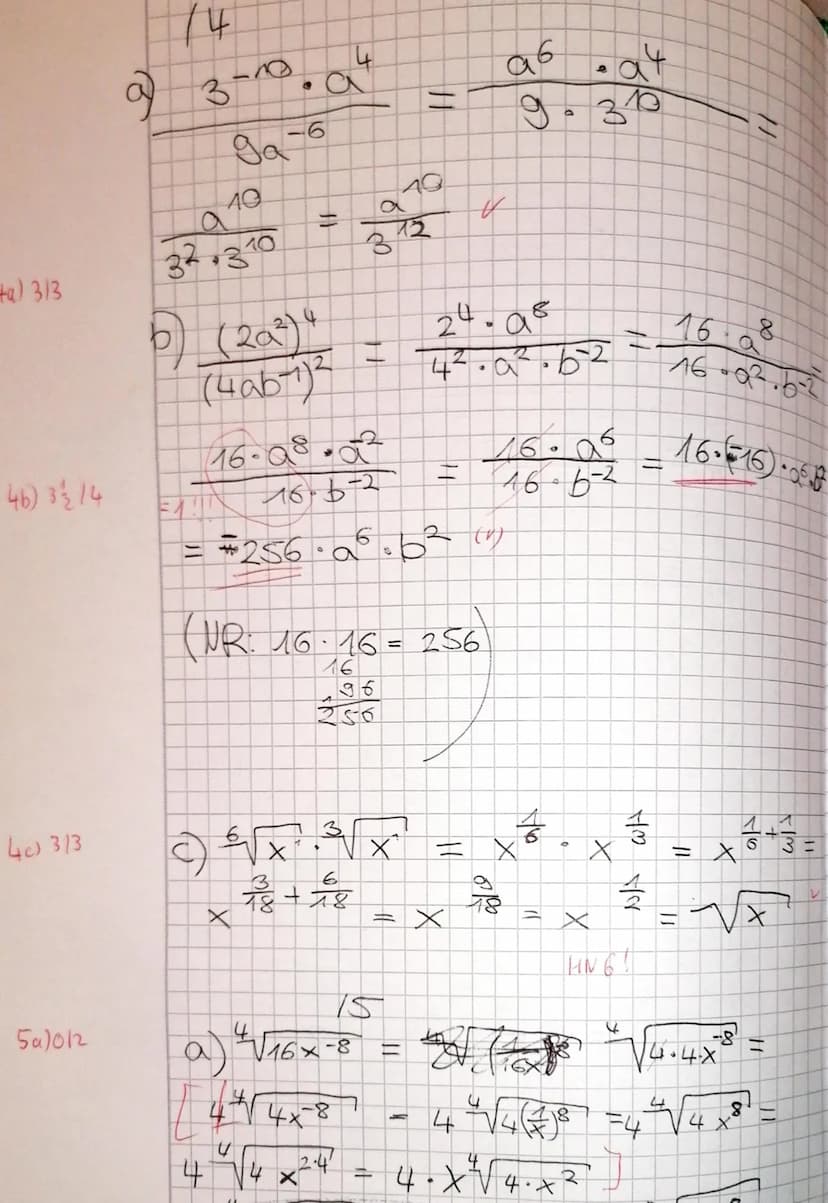 /4
a) (3^-10 · a^4)/(9a^-6) = (a^6 · a^4)/(9 · 3^10) =
a^10/(3^2 · 3^10) = a^10/3^12 ✓
4a) 3/3
b) (2a^2)^4/(4ab^-1)^2 = (2^4 · a^8)/(4^2 · a^2 · b^-2) = (16 · a^8)/(16 · a^2 · b^-2) =
(16 · a^8 · a^-2)/(16 · b^-2) = (16 · a^6)/(16 · b^-2) = 16 · (-16) · a^6 · b^2
4b) 3 1/2 /4
=1!!!
= -256 · a^6 · b^2 (✓)
(NR: 16 · 16 = 256)
16
96
256
4c) 3/3
c) ⁶√x · ³√x = x^(1/6) · x^(1/3) = x^(1/6 + 1/3) =
x^(3/18 + 6/18) = x^(9/18) = x^(1/2) = √x ✓
HN 6!
/5
5a) 0/2
a) ⁴√(16x^-8) = ⁴√(4·4·x^-8) =
[4 ⁴√(4x^-8) = 4 ⁴√(4(1/x)^8) = 4 ⁴√(4x^8) =
4 ⁴√(4 x^(2·4)) = 4 · x ⁴√(4 · x^2) ]